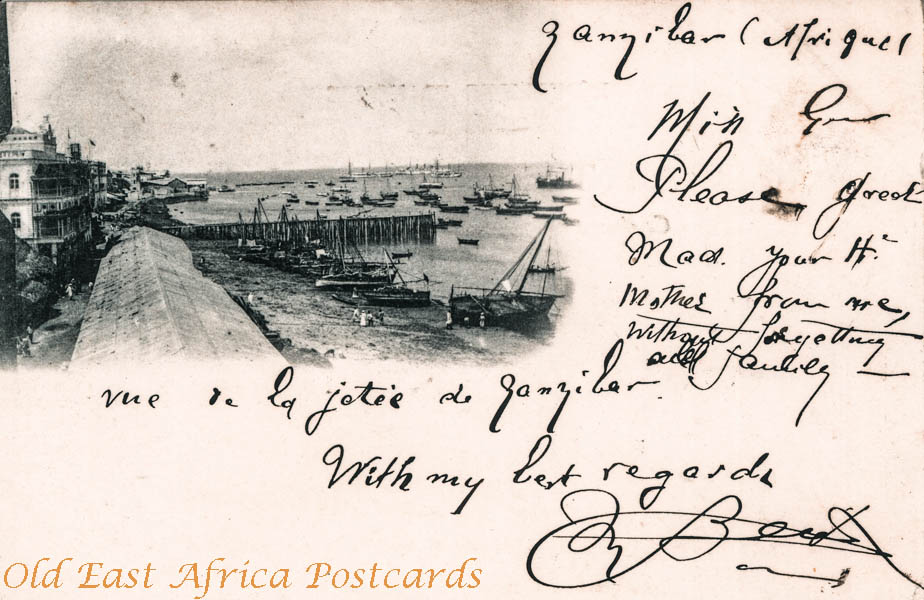 Zanzibar (Afrique)
Miss
Please greet
Mad. your Hr.
Mother from me,
Without forgetting
all family —
vue de la jetée de Zanzibar
With my best regards
Old East Africa Postcards